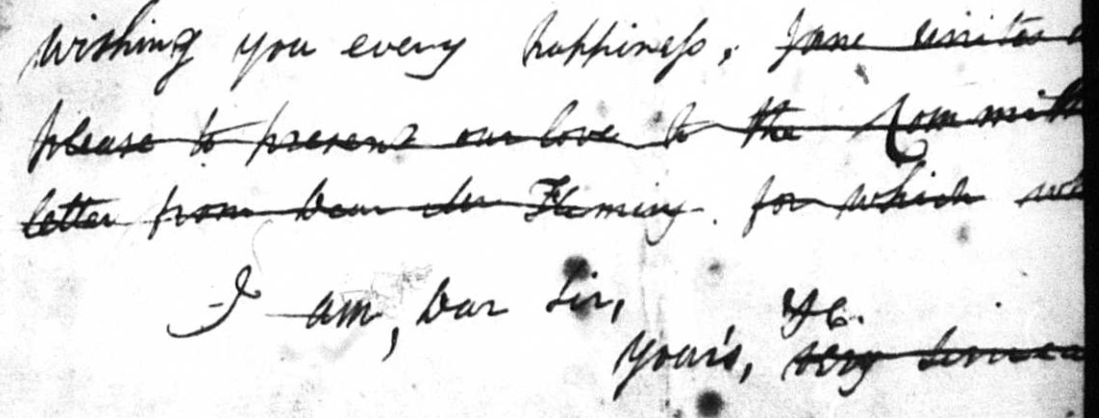 wishing you every happiness, Jane unites
please to present our love to the Committ
letter from Dear Mr Fleming. for which we
I am, Dear Sir,
&c.
yours, very sincer